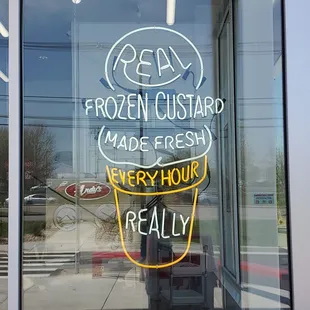 REAL
FROZEN CUSTARD
(MADE FRESH)
EVERY HOUR
REALLY